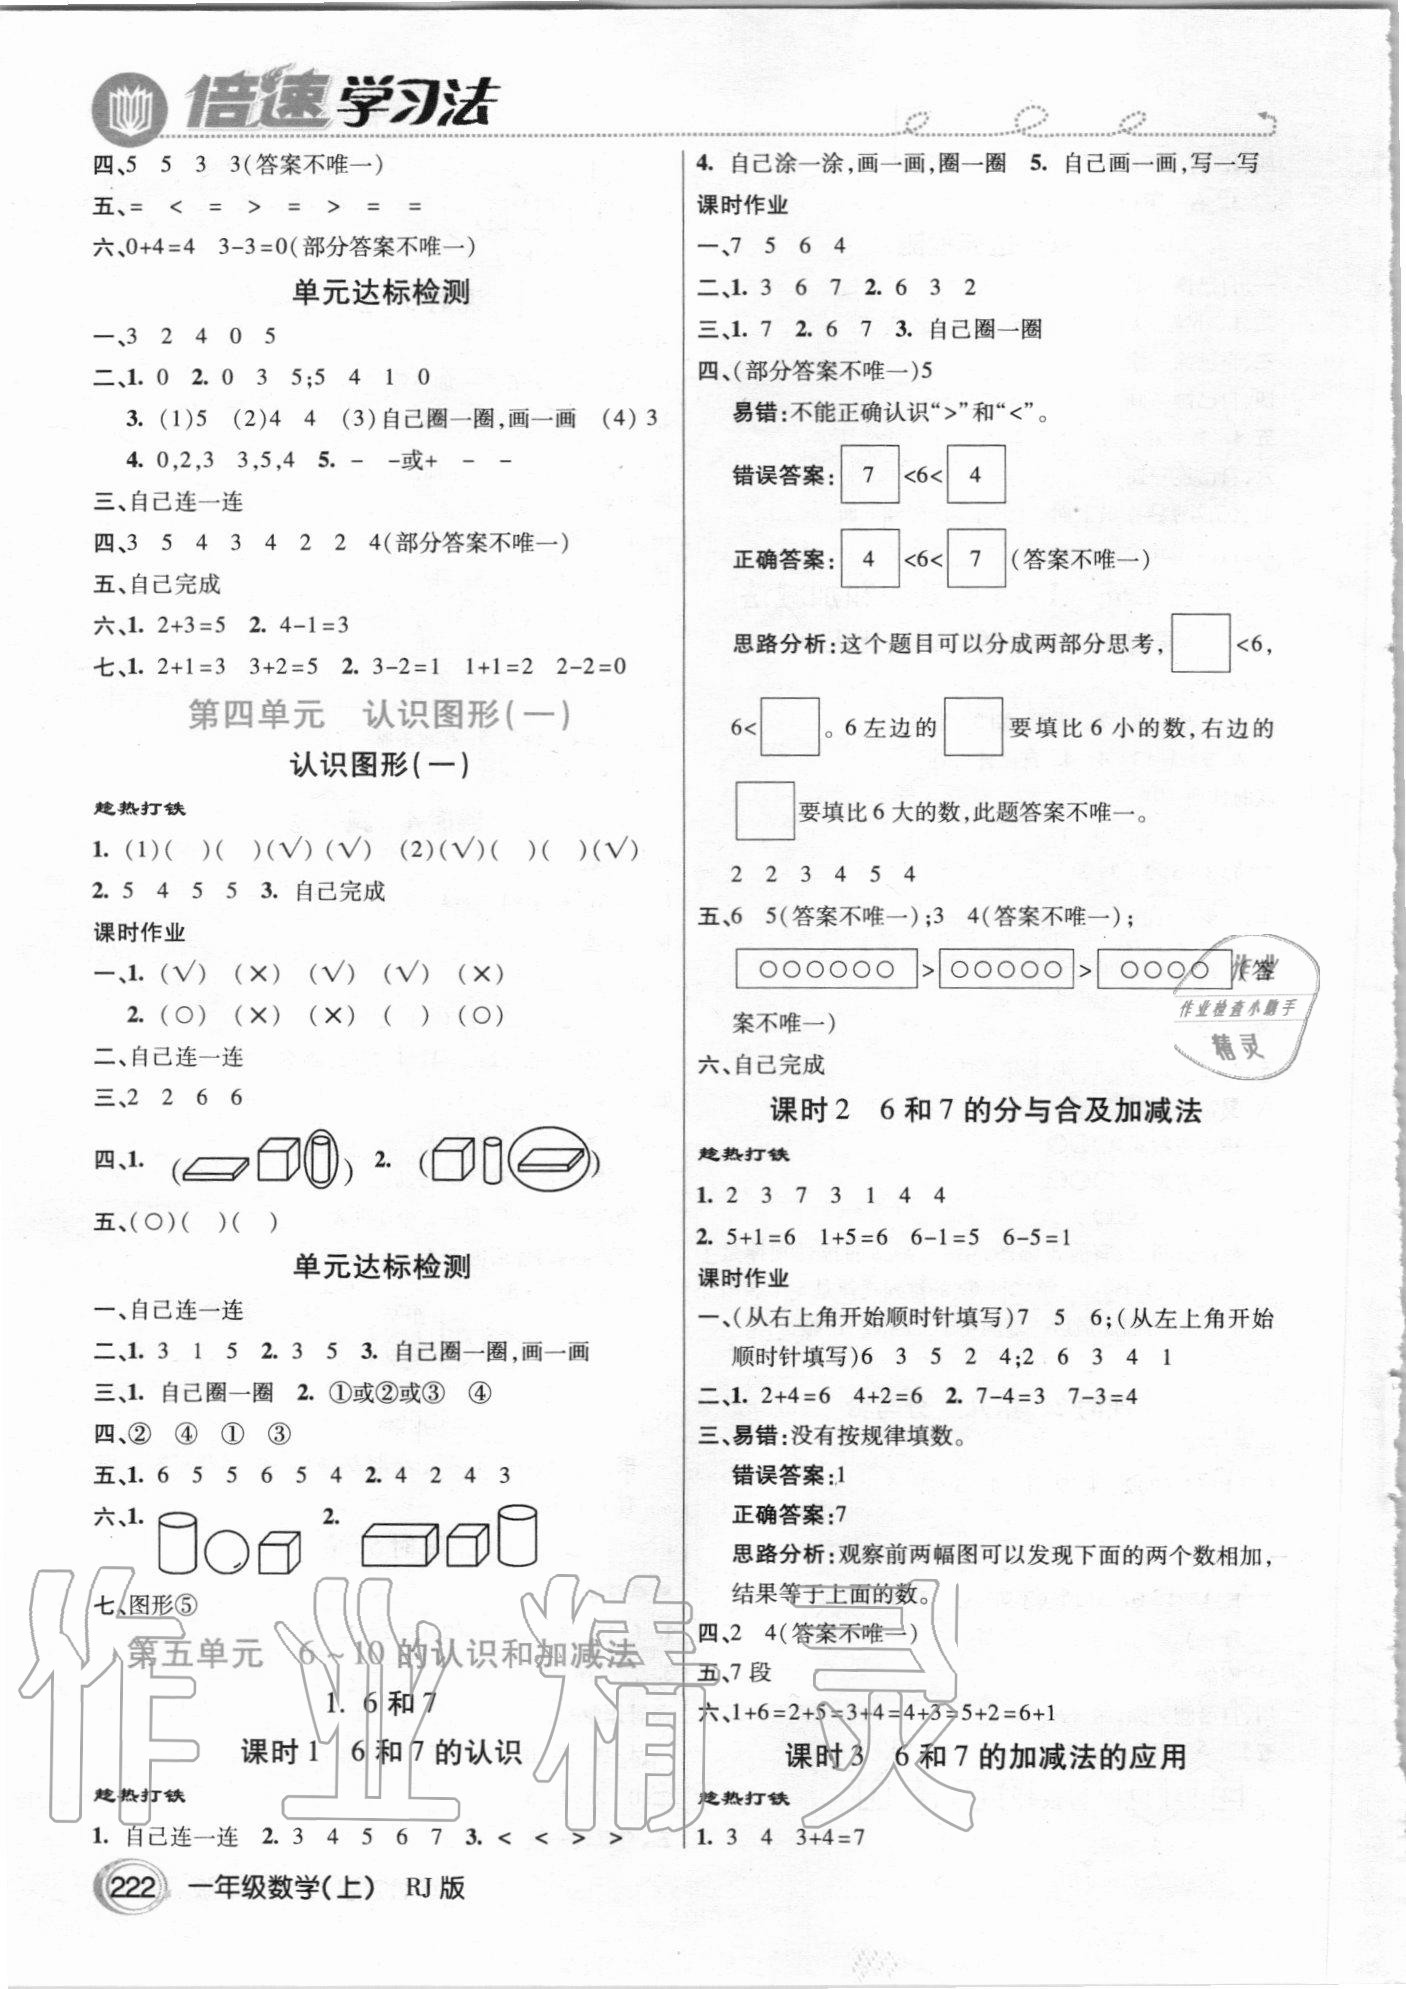 倍速学习法
四、5 5 3 3(答案不唯一)
五、= < = > = > = =
六、0+4=4 3-3=0(部分答案不唯一)
单元达标检测
一、3 2 4 0 5
二、1. 0 2. 0 3 5;5 4 1 0
3. (1)5 (2)4 4 (3)自己圈一圈,画一画 (4) 3
4. 0,2,3 3,5,4 5. - -或+ - -
三、自己连一连
四、3 5 4 3 4 2 2 4(部分答案不唯一)
五、自己完成
六、1. 2+3=5 2. 4-1=3
七、1. 2+1=3 3+2=5 2. 3-2=1 1+1=2 2-2=0
第四单元 认识图形(一)
认识图形(一)
趁热打铁
1. (1)( )( )(√) (√) (2)(√)( )( )(√)
2. 5 4 5 5 3. 自己完成
课时作业
一、1. (√) (×) (√) (√) (×)
2. (○) (×) (×) ( ) (○)
二、自己连一连
三、2 2 6 6
四、1. ( ) 2. ( )
五、(○)( )( )
单元达标检测
一、自己连一连
二、1. 3 1 5 2. 3 5 3. 自己圈一圈,画一画
三、1. 自己圈一圈 2. ①或②或③ ④
四、② ④ ① ③
五、1. 6 5 5 6 5 4 2. 4 2 4 3
六、1. 2.
七、图形⑤
第五单元 6~10的认识和加减法
1. 6和7
课时1 6和7的认识
趁热打铁
1. 自己连一连 2. 3 4 5 6 7 3. < < > >
222 一年级数学(上) RJ版
4. 自己涂一涂,画一画,圈一圈 5. 自己画一画,写一写
课时作业
一、7 5 6 4
二、1. 3 6 7 2. 6 3 2
三、1. 7 2. 6 7 3. 自己圈一圈
四、(部分答案不唯一)5
易错:不能正确认识“>”和“<”。
错误答案: 7 <6< 4
正确答案: 4 <6< 7 (答案不唯一)
思路分析:这个题目可以分成两部分思考, <6,
6< 。6左边的 要填比6小的数,右边的
要填比6大的数,此题答案不唯一。
2 2 3 4 5 4
五、6 5(答案不唯一);3 4(答案不唯一);
○○○○○○ > ○○○○○ > ○○○○ (答
案不唯一)
六、自己完成
课时2 6和7的分与合及加减法
趁热打铁
1. 2 3 7 3 1 4 4
2. 5+1=6 1+5=6 6-1=5 6-5=1
课时作业
一、(从右上角开始顺时针填写)7 5 6;(从左上角开始
顺时针填写)6 3 5 2 4;2 6 3 4 1
二、1. 2+4=6 4+2=6 2. 7-4=3 7-3=4
三、易错:没有按规律填数。
错误答案:1
正确答案:7
思路分析:观察前两幅图可以发现下面的两个数相加,
结果等于上面的数。
四、2 4(答案不唯一)
五、7段
六、1+6=2+5=3+4=4+3=5+2=6+1
课时3 6和7的加减法的应用
趁热打铁
1. 3 4 3+4=7
作业
作业检查小助手
精灵
作业精灵